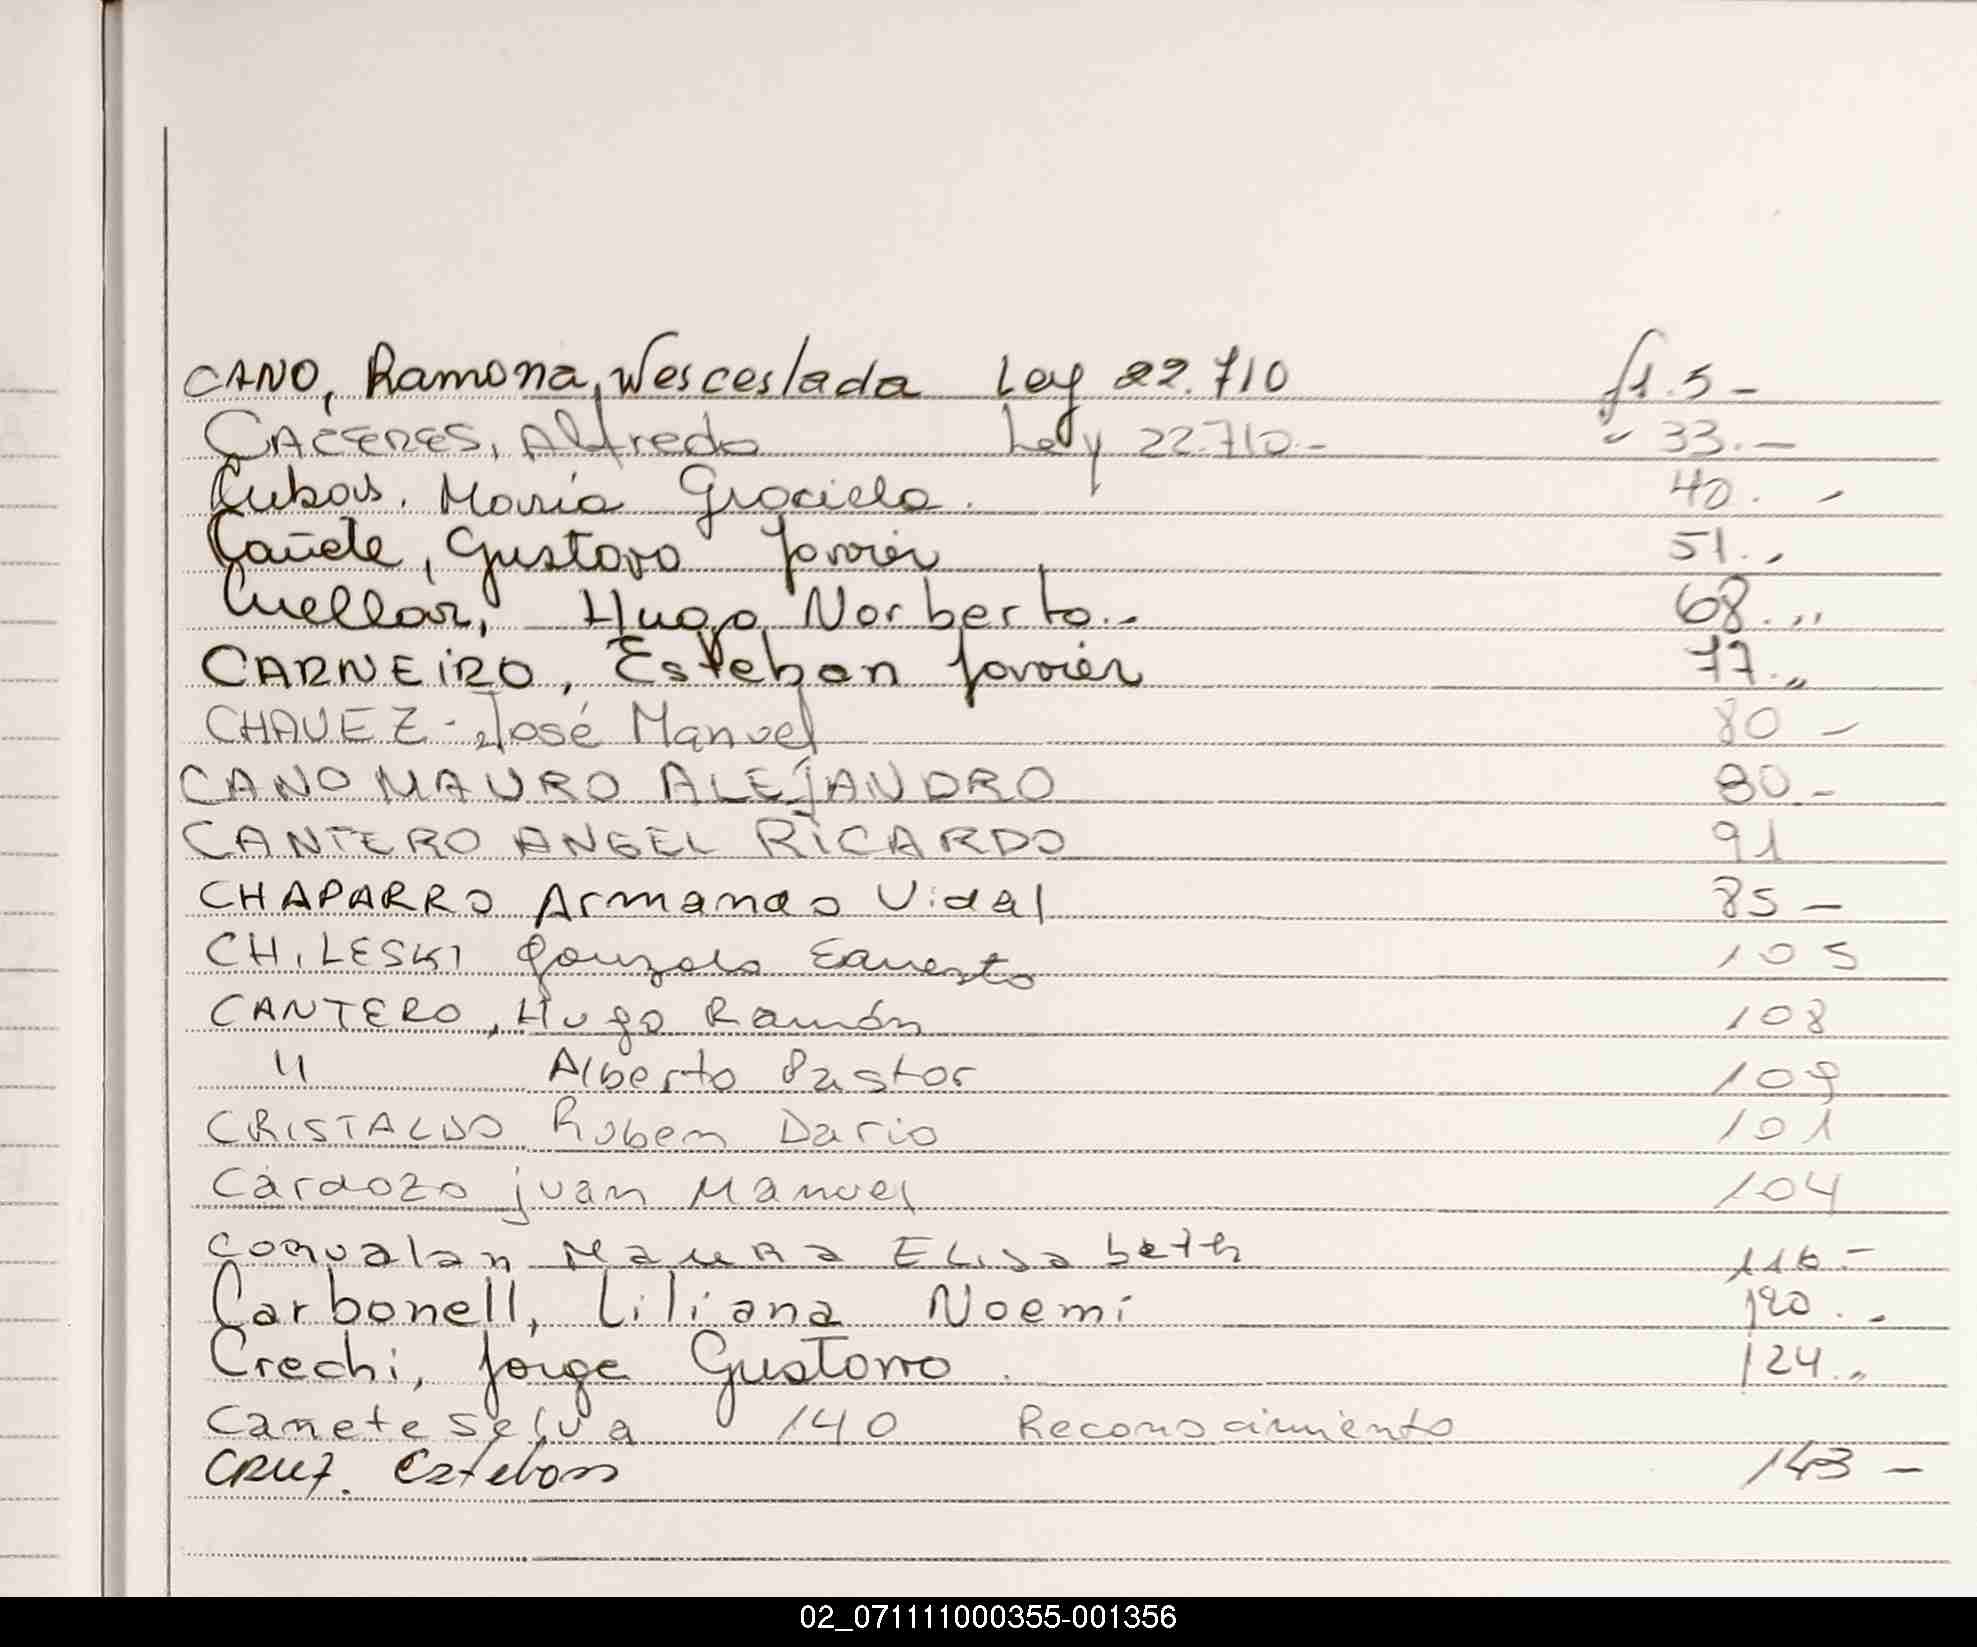 CANO, Ramona, Wesceslada Ley 22.710 fl. 5 -
CACERES, Alfredo Ley 22.710.- " 33.-
Cubas. María Graciela. 40. -
Cañete, Gustavo Javier 51.,
Cuellar, Hugo Norberto.- 68.,,
CARNEIRO, Esteban Javier 77.,,
CHAVEZ - José Manuel 80 -
CANO MAURO ALEJANDRO 80 -
CANTERO ANGEL RICARDO 91
CHAPARRO Armando Vidal 85 -
CHILESKI Gonzalo Ernesto 105
CANTERO, Hugo Ramón 108
" Alberto Pastor 109
CRISTALDO Ruben Dario 101
Cardozo juan Manuel 104
Corvalan Maura ELisabeth 116.-
Carbonell, Liliana Noemí 120.-
Crechi, Jorge Gustavo. 124.,,
Canete selva 140 Reconocimiento
CRUZ. Esteban 143 -
02_071111000355-001356